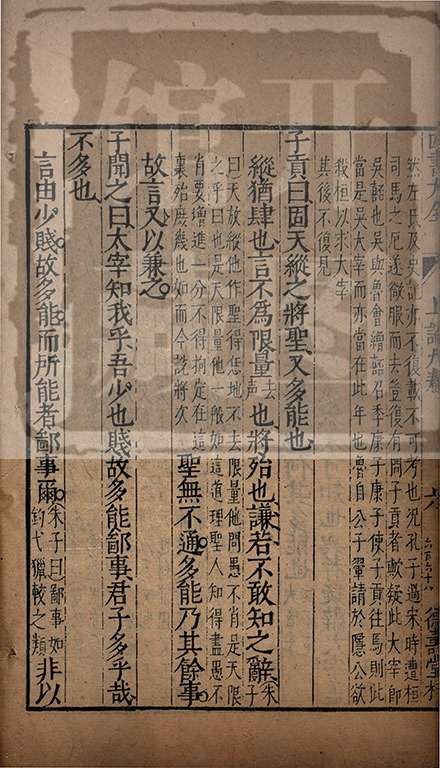 然左氏及史記亦不復載不可考也況孔子過宋時遭桓
司馬之厄遂微服而去豈復有問子貢者歟疑此大宰即
吳嚭也吳與魯會繒嚭召季康子康子使子貢往焉則此
當是吳大宰而亦當在此年也魯自公子翬請於隱公欲
我桓以求大宰
其後不復見
子貢曰固天縱之將聖又多能也
縱猶肆也言不為限量去聲也將殆也謙若不敢知之辭朱子
曰天放縱他作聖得恁地不去限量他問愚不肖是天限
之乎曰也是天限量他一般如這道理聖人知得盡愚不
肖要增進一分不得拘定在這
裏殆庶幾也如而今說將次
聖無不通多能乃其餘事
故言又以兼之
子聞之曰太宰知我乎吾少也賤故多能鄙事君子多乎哉
不多也
言由少賤故多能而所能者鄙事爾朱子曰鄙事如釣弋獵較之類非以